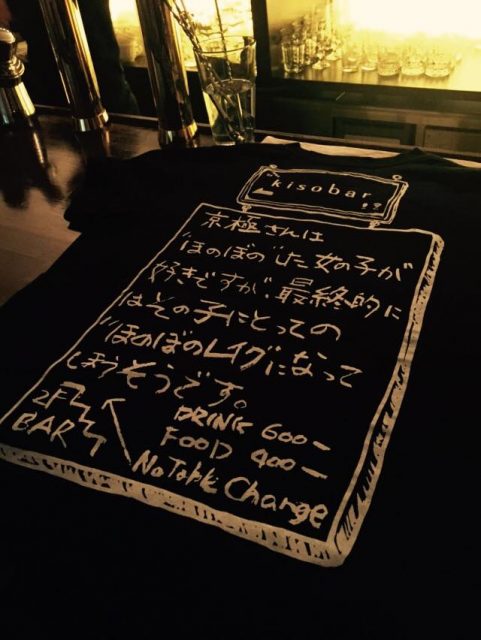 kisobar
京極さんは
"ほのぼの"した女の子が
好きですが、最終的に
はその子にとっての
"ほのぼのレイプ"になって
しまうそうです。
2F
BAR
DRINK 600-
FOOD 400-
No Table Charge